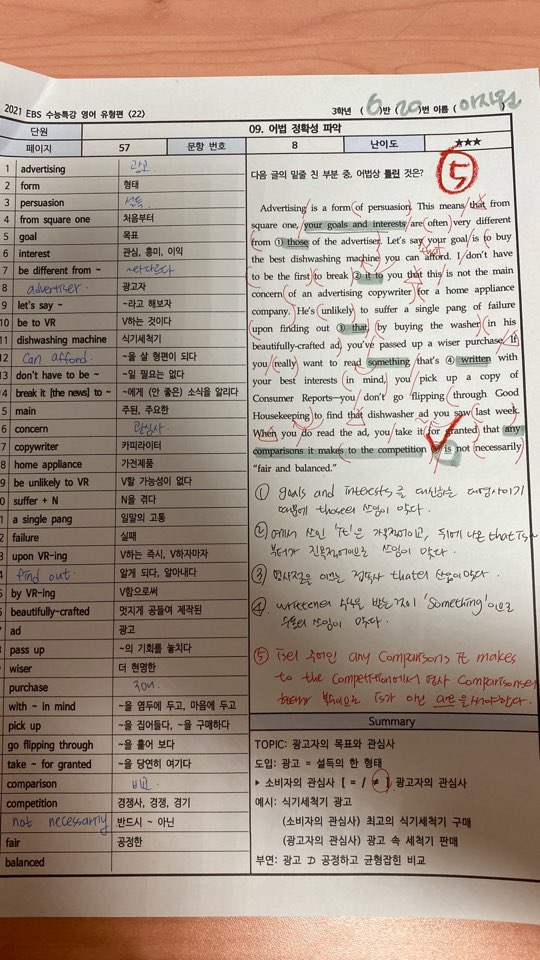 2021 EBS 수능특강 영어 유형편 <22>
3학년 ( 6 )반 ( 20 )번 이름 ( )
단원 09. 어법 정확성 파악
페이지 57 문항 번호 8 난이도 ★★★
1 advertising 광고
2 form 형태
3 persuasion 설득
4 from square one 처음부터
5 goal 목표
6 interest 관심, 흥미, 이익
7 be different from ~ ~와 다르다
8 advertiser 광고자
9 let's say ~ ~라고 해보자
10 be to VR V하는 것이다
11 dishwashing machine 식기세척기
12 can afford. ~을 살 형편이 되다
13 don't have to be ~ ~일 필요는 없다
14 break it [the news] to ~ ~에게 (안 좋은) 소식을 알리다
5 main 주된, 주요한
6 concern 관심사
7 copywriter 카피라이터
8 home appliance 가전제품
9 be unlikely to VR V할 가능성이 없다
0 suffer + N N을 겪다
1 a single pang 일말의 고통
2 failure 실패
3 upon VR-ing V하는 즉시, V하자마자
4 find out. 알게 되다, 알아내다
5 by VR-ing V함으로써
6 beautifully-crafted 멋지게 공들여 제작된
7 ad 광고
8 pass up ~의 기회를 놓치다
wiser 더 현명한
purchase 구매.
with ~ in mind ~을 염두에 두고, 마음에 두고
pick up ~을 집어들다, ~을 구매하다
go flipping through ~을 훑어 보다
take ~ for granted ~을 당연히 여기다
comparison 비교
competition 경쟁사, 경쟁, 경기
not necessarily 반드시 ~ 아닌
fair 공정한
balanced
다음 글의 밑줄 친 부분 중, 어법상 틀린 것은?
⑤
Advertising is a form of persuasion. This means that from
square one, your goals and interests are often very different
from ① those of the advertiser. Let's say your goal is to buy
that
the best dishwashing machine you can afford. I don't have
to be the first to break ② it to you that this is not the main
concern of an advertising copywriter for a home appliance
company. He's unlikely to suffer a single pang of failure
upon finding out ③ that, by buying the washer in his
beautifully-crafted ad, you've passed up a wiser purchase. If
you really want to read something that's ④ written with
your best interests in mind, you pick up a copy of
Consumer Reports—you don't go flipping through Good
Housekeeping to find that dishwasher ad you saw last week.
When you do read the ad, you take it for granted that any
comparisons it makes to the competition ⑤ is not necessarily
"fair and balanced."
① goals and interests를 대신하는 대명사이기
때문에 those의 쓰임이 맞다.
② 에서 쓰인 'it'은 가목적어이고, 뒤에 나온 that is
부터가 진목적어이므로 쓰임이 맞다.
③ 명사절을 이끄는 접속사 that의 쓰임이 맞다.
④ written의 수식을 받는 것이 'something'이므로
수동의 쓰임이 맞다.
⑤ is의 주어인 any comparisons it makes
to the competition에서 명사 comparisons에
복수이므로 is가 아닌 are을 써야한다.
Summary
TOPIC: 광고자의 목표와 관심사
도입: 광고 = 설득의 한 형태
▸ 소비자의 관심사 [ = / ≠ ] 광고자의 관심사
예시: 식기세척기 광고
(소비자의 관심사) 최고의 식기세척기 구매
(광고자의 관심사) 광고 속 세척기 판매
부연: 광고 ⊅ 공정하고 균형잡힌 비교